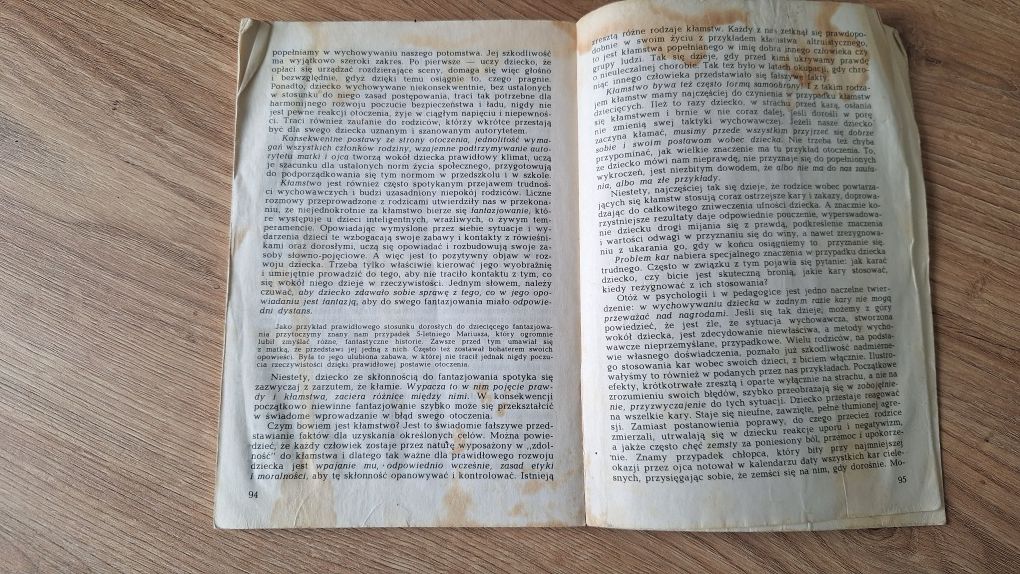 popełniamy w wychowywaniu naszego potomstwa. Jej szkodliwość
ma wyjątkowo szeroki zakres. Po pierwsze — uczy dziecko, że
opłaci się urządzać rozdzierające sceny, domaga się więc głośno
i bezwzględnie, gdyż dzięki temu osiągnie to, czego pragnie.
Ponadto, dziecko wychowywane niekonsekwentnie, bez ustalonych
w stosunku do niego zasad postępowania, traci tak potrzebne dla
harmonijnego rozwoju poczucie bezpieczeństwa i ładu, nigdy nie
jest pewne reakcji otoczenia, żyje w ciągłym napięciu i niepewnoś-
ci. Traci również zaufanie do rodziców, którzy wkrótce przestają
być dla swego dziecka uznanym i szanowanym autorytetem.
Konsekwentne postawy ze strony otoczenia, jednolitość wyma-
gań wszystkich członków rodziny, wzajemne podtrzymywanie auto-
rytetu matki i ojca tworzą wokół dziecka prawidłowy klimat, uczą
je szacunku dla ustalonych norm życia społecznego, przygotowują
do podporządkowania się tym normom w przedszkolu i w szkole.
Kłamstwo jest również często spotykanym przejawem trudnoś-
ci wychowawczych i budzi uzasadniony niepokój rodziców. Liczne
rozmowy przeprowadzone z rodzicami utwierdziły nas w przekona-
niu, że niejednokrotnie za kłamstwo bierze się fantazjowanie, któ-
re występuje u dzieci inteligentnych, wrażliwych, o żywym tem-
peramencie. Opowiadając wymyślone przez siebie sytuacje i wy-
darzenia dzieci te wzbogacają swoje zabawy i kontakty z rówieśni-
kami oraz dorosłymi, uczą się opowiadać i rozbudowują swoje za-
soby słowno-pojęciowe. A więc jest to pozytywny objaw w roz-
woju dziecka. Trzeba tylko właściwie kierować jego wyobraźnię
i umiejętnie prowadzić do tego, aby nie traciło kontaktu z tym, co
się wokół niego dzieje w rzeczywistości. Jednym słowem, należy
czuwać, aby dziecko zdawało sobie sprawę z tego, co w jego opo-
wiadaniu jest fantazją, aby do swego fantazjowania miało odpowie-
dni dystans.
Jako przykład prawidłowego stosunku dorosłych do dziecięcego fantazjowa-
nia przytoczymy znany nam przypadek 5-letniego Mariusza, który ogromnie
lubił zmyślać różne, fantastyczne historie. Zawsze przed tym umawiał się
z matką, że przedstawi jej jedną z nich. Często też zostawał bohaterem swoich
opowieści. Była to jego ulubiona zabawa, w której nie tracił jednak nigdy poczu-
cia rzeczywistości dzięki prawidłowej postawie otoczenia.
Niestety, dziecko ze skłonnością do fantazjowania spotyka się
zazwyczaj z zarzutem, że kłamie. Wypacza to w nim pojęcie praw-
dy i kłamstwa, zaciera różnice między nimi. W konsekwencji
początkowo niewinne fantazjowanie szybko może się przekształcić
w świadome wprowadzanie w błąd swego otoczenia.
Czym bowiem jest kłamstwo? Jest to świadome fałszywe przed-
stawianie faktów dla uzyskania określonych celów. Można powie-
dzieć, że każdy człowiek zostaje przez naturę wyposażony w „zdol-
ność” do kłamstwa i dlatego tak ważne dla prawidłowego rozwoju
dziecka jest wpajanie mu, odpowiednio wcześnie, zasad etyki
i moralności, aby tę skłonność opanowywać i kontrolować. Istnieją
94
zresztą różne rodzaje kłamstw. Każdy z nas zetknął się prawdopo-
dobnie w swoim życiu z przykładem kłamstwa altruistycznego,
to jest kłamstwa popełnianego w imię dobra innego człowieka czy
grupy ludzi. Tak się dzieje, gdy przed kimś ukrywamy prawdę
o nieuleczalnej chorobie. Tak też było w latach okupacji, gdy chro-
niąc innego człowieka przedstawiało się fałszywe fakty.
Kłamstwo bywa też często formą samoobrony. I z takim rodza-
jem kłamstw mamy najczęściej do czynienia w przypadku kłamstw
dziecięcych. Ileż to razy dziecko, w strachu przed karą, osłania
się kłamstwem i brnie w nie coraz dalej, jeśli dorośli w porę
nie zmienią swej taktyki wychowawczej. Jeżeli nasze dziecko
zaczyna kłamać, musimy przede wszystkim przyjrzeć się dobrze
sobie i swoim postawom wobec dziecka. Nie trzeba też chyba
przypominać, jak wielkie znaczenie ma tu przykład otoczenia. To,
że dziecko mówi nam nieprawdę, nie przyznaje się do popełnionych
wykroczeń, jest niezbitym dowodem, że albo nie ma do nas zaufa-
nia, albo ma złe przykłady.
Niestety, najczęściej tak się dzieje, że rodzice wobec powtarza-
jących się kłamstw stosują coraz ostrzejsze kary i zakazy, doprowa-
dzając do całkowitego zniweczenia ufności dziecka. A znacznie ko-
rzystniejsze rezultaty daje odpowiednie pouczenie, wyperswadowa-
nie dziecku drogi mijania się z prawdą, podkreślenie znaczenia
i wartości odwagi w przyznaniu się do winy, a nawet zrezygnowa-
nia z ukarania go, gdy w końcu osiągniemy to przyznanie się.
Problem kar nabiera specjalnego znaczenia w przypadku dziecka
trudnego. Często w związku z tym pojawia się pytanie: jak karać
dziecko, czy bicie jest skuteczną bronią, jakie kary stosować,
kiedy rezygnować z ich stosowania?
Otóż w psychologii i w pedagogice jest jedno naczelne twier-
dzenie: w wychowywaniu dziecka w żadnym razie kary nie mogą
przeważać nad nagrodami. Jeśli się tak dzieje, możemy z góry
powiedzieć, że jest źle, że sytuacja wychowawcza, stworzona
wokół dziecka, jest zdecydowanie niewłaściwa, a metody wycho-
wawcze nieprzemyślane, przypadkowe. Wielu rodziców, na podsta-
wie własnego doświadczenia, poznało już szkodliwość nadmierne-
go stosowania kar wobec swoich dzieci, z biciem włącznie. Ilustro-
wałyśmy to również w podanych przez nas przykładach. Początkowe
efekty, krótkotrwałe zresztą i oparte wyłącznie na strachu, a nie na
zrozumieniu swoich błędów, szybko przeobrażają się w zobojętnie-
nie, przyzwyczajenie do tych sytuacji. Dziecko przestaje reagować
na wszelkie kary. Staje się nieufne, zawzięte, pełne tłumionej agre-
sji. Zamiast postanowienia poprawy, do czego przecież rodzice
zmierzali, utrwalają się w dziecku reakcje uporu i negatywizm,
a jakże często chęć zemsty za poniesiony ból, przemoc i upokorze-
nie. Znamy przypadek chłopca, który bity przy najmniejszej
okazji przez ojca notował w kalendarzu daty wszystkich kar ciele-
snych, przysięgając sobie, że zemści się na nim, gdy dorośnie. Mo-
95